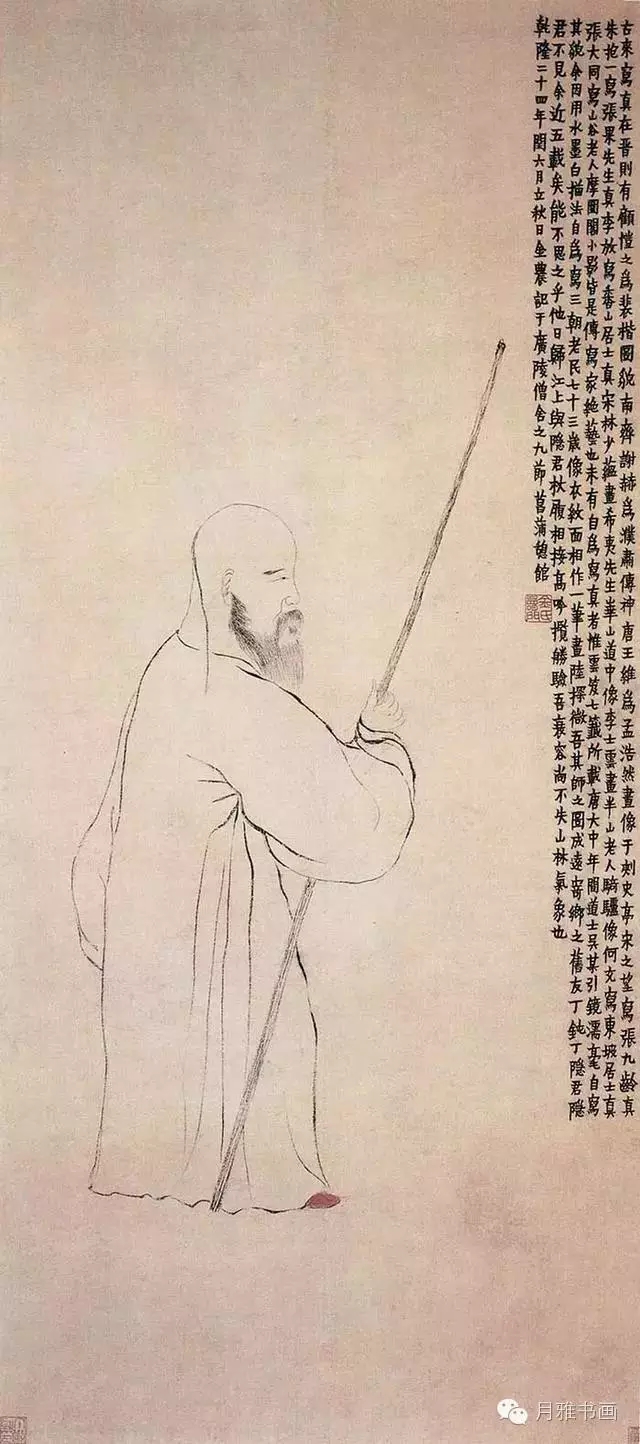 古來寫真在晉則有顧愷之爲裴楷圖貌南齊謝赫爲濮肅傳神唐王維爲孟浩然畫像于刺史亭宋之望寫張九齡真
朱抱一寫張果先生真李放寫香山居士真宋林少蘊畫希夷先生華山道中像李士雲畫半山老人騎驢像何充寫東坡居士真
張大同寫山谷老人摩圍閣小影皆是傳寫家絶藝也未有自爲寫真者惟雲笈七籤所載唐大中年間道士吳某引鏡濡毫自寫
其貌余因用水墨白描法自爲寫三朝老民七十三歲像衣紋面相作一筆畫陸探微吾其師之圖成遠寄鄉之舊友丁鈍丁隱君隱
君不見余近五載矣能不思之乎他日歸江上與隱君杖履相接高吟攬勝驗吾衰容尚不失山林氣象也
乾隆二十四年閏六月立秋日金農記于廣陵僧舍之九節菖蒲憩館
月雅书画